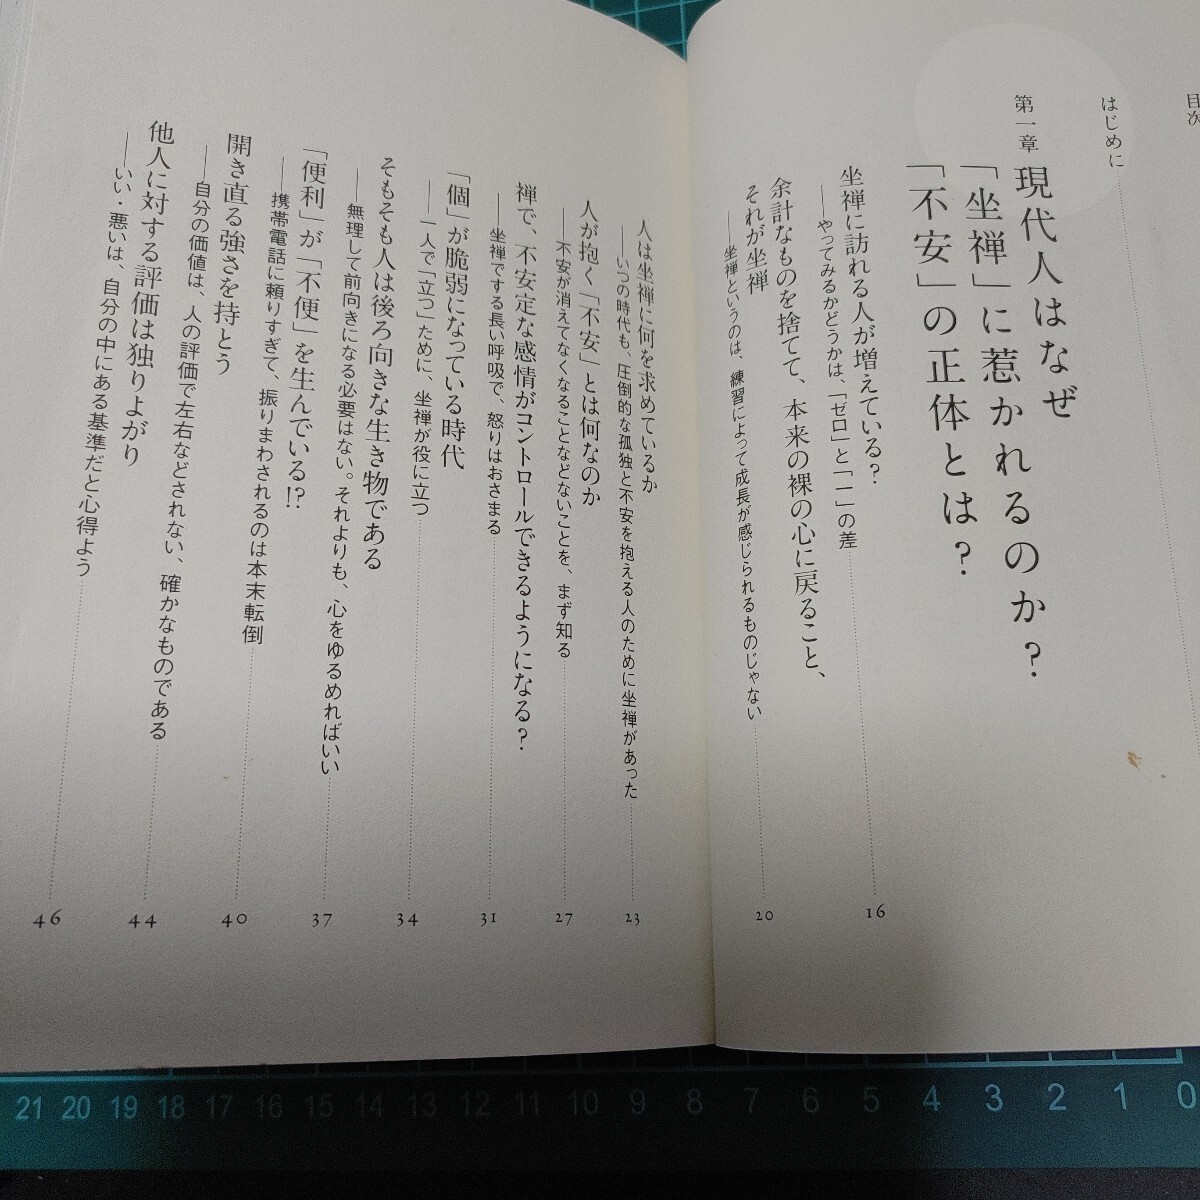 目次
はじめに
第一章 現代人はなぜ
「坐禅」に惹かれるのか?
「不安」の正体とは?
坐禅に訪れる人が増えている?
――やってみるかどうかは、「ゼロ」と「一」の差 16
余計なものを捨てて、本来の裸の心に戻ること、
それが坐禅
――坐禅というのは、練習によって成長が感じられるものじゃない 20
人は坐禅に何を求めているか
――いつの時代も、圧倒的な孤独と不安を抱える人のために坐禅があった 23
人が抱く「不安」とは何なのか
――不安が消えてなくなることなどないことを、まず知る 27
禅で、不安定な感情がコントロールできるようになる?
――坐禅でする長い呼吸で、怒りはおさまる 31
「個」が脆弱になっている時代
――一人で「立つ」ために、坐禅が役に立つ 34
そもそも人は後ろ向きな生き物である
――無理して前向きになる必要はない。それよりも、心をゆるめればいい 37
「便利」が「不便」を生んでいる!?
――携帯電話に頼りすぎて、振りまわされるのは本末転倒 40
開き直る強さを持とう
――自分の価値は、人の評価で左右などされない、確かなものである 44
他人に対する評価は独りよがり
――いい・悪いは、自分の中にある基準だと心得よう 46
21 20 19 18 17 16 15 14 13 12 11 10 9 8 7 6 5 4 3 2 1 0